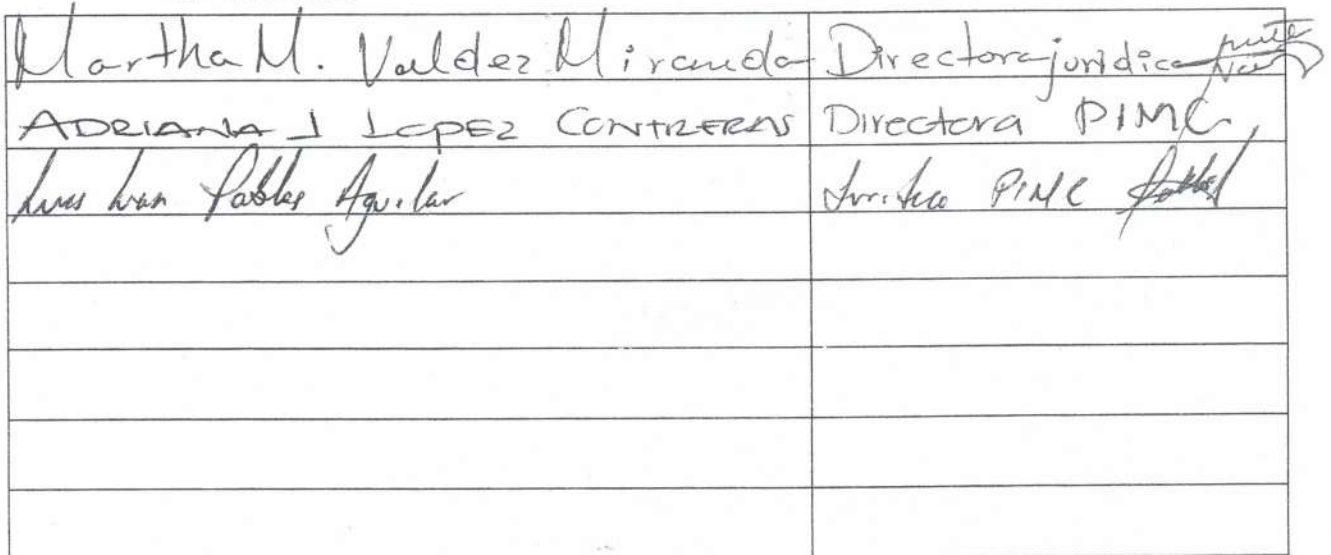 Martha M. Valdez Miranda Directora jurídica
ADRIANA J LOPEZ CONTRERAS Directora PIMC
Luis Ivan Pablos Aguilar PIMC